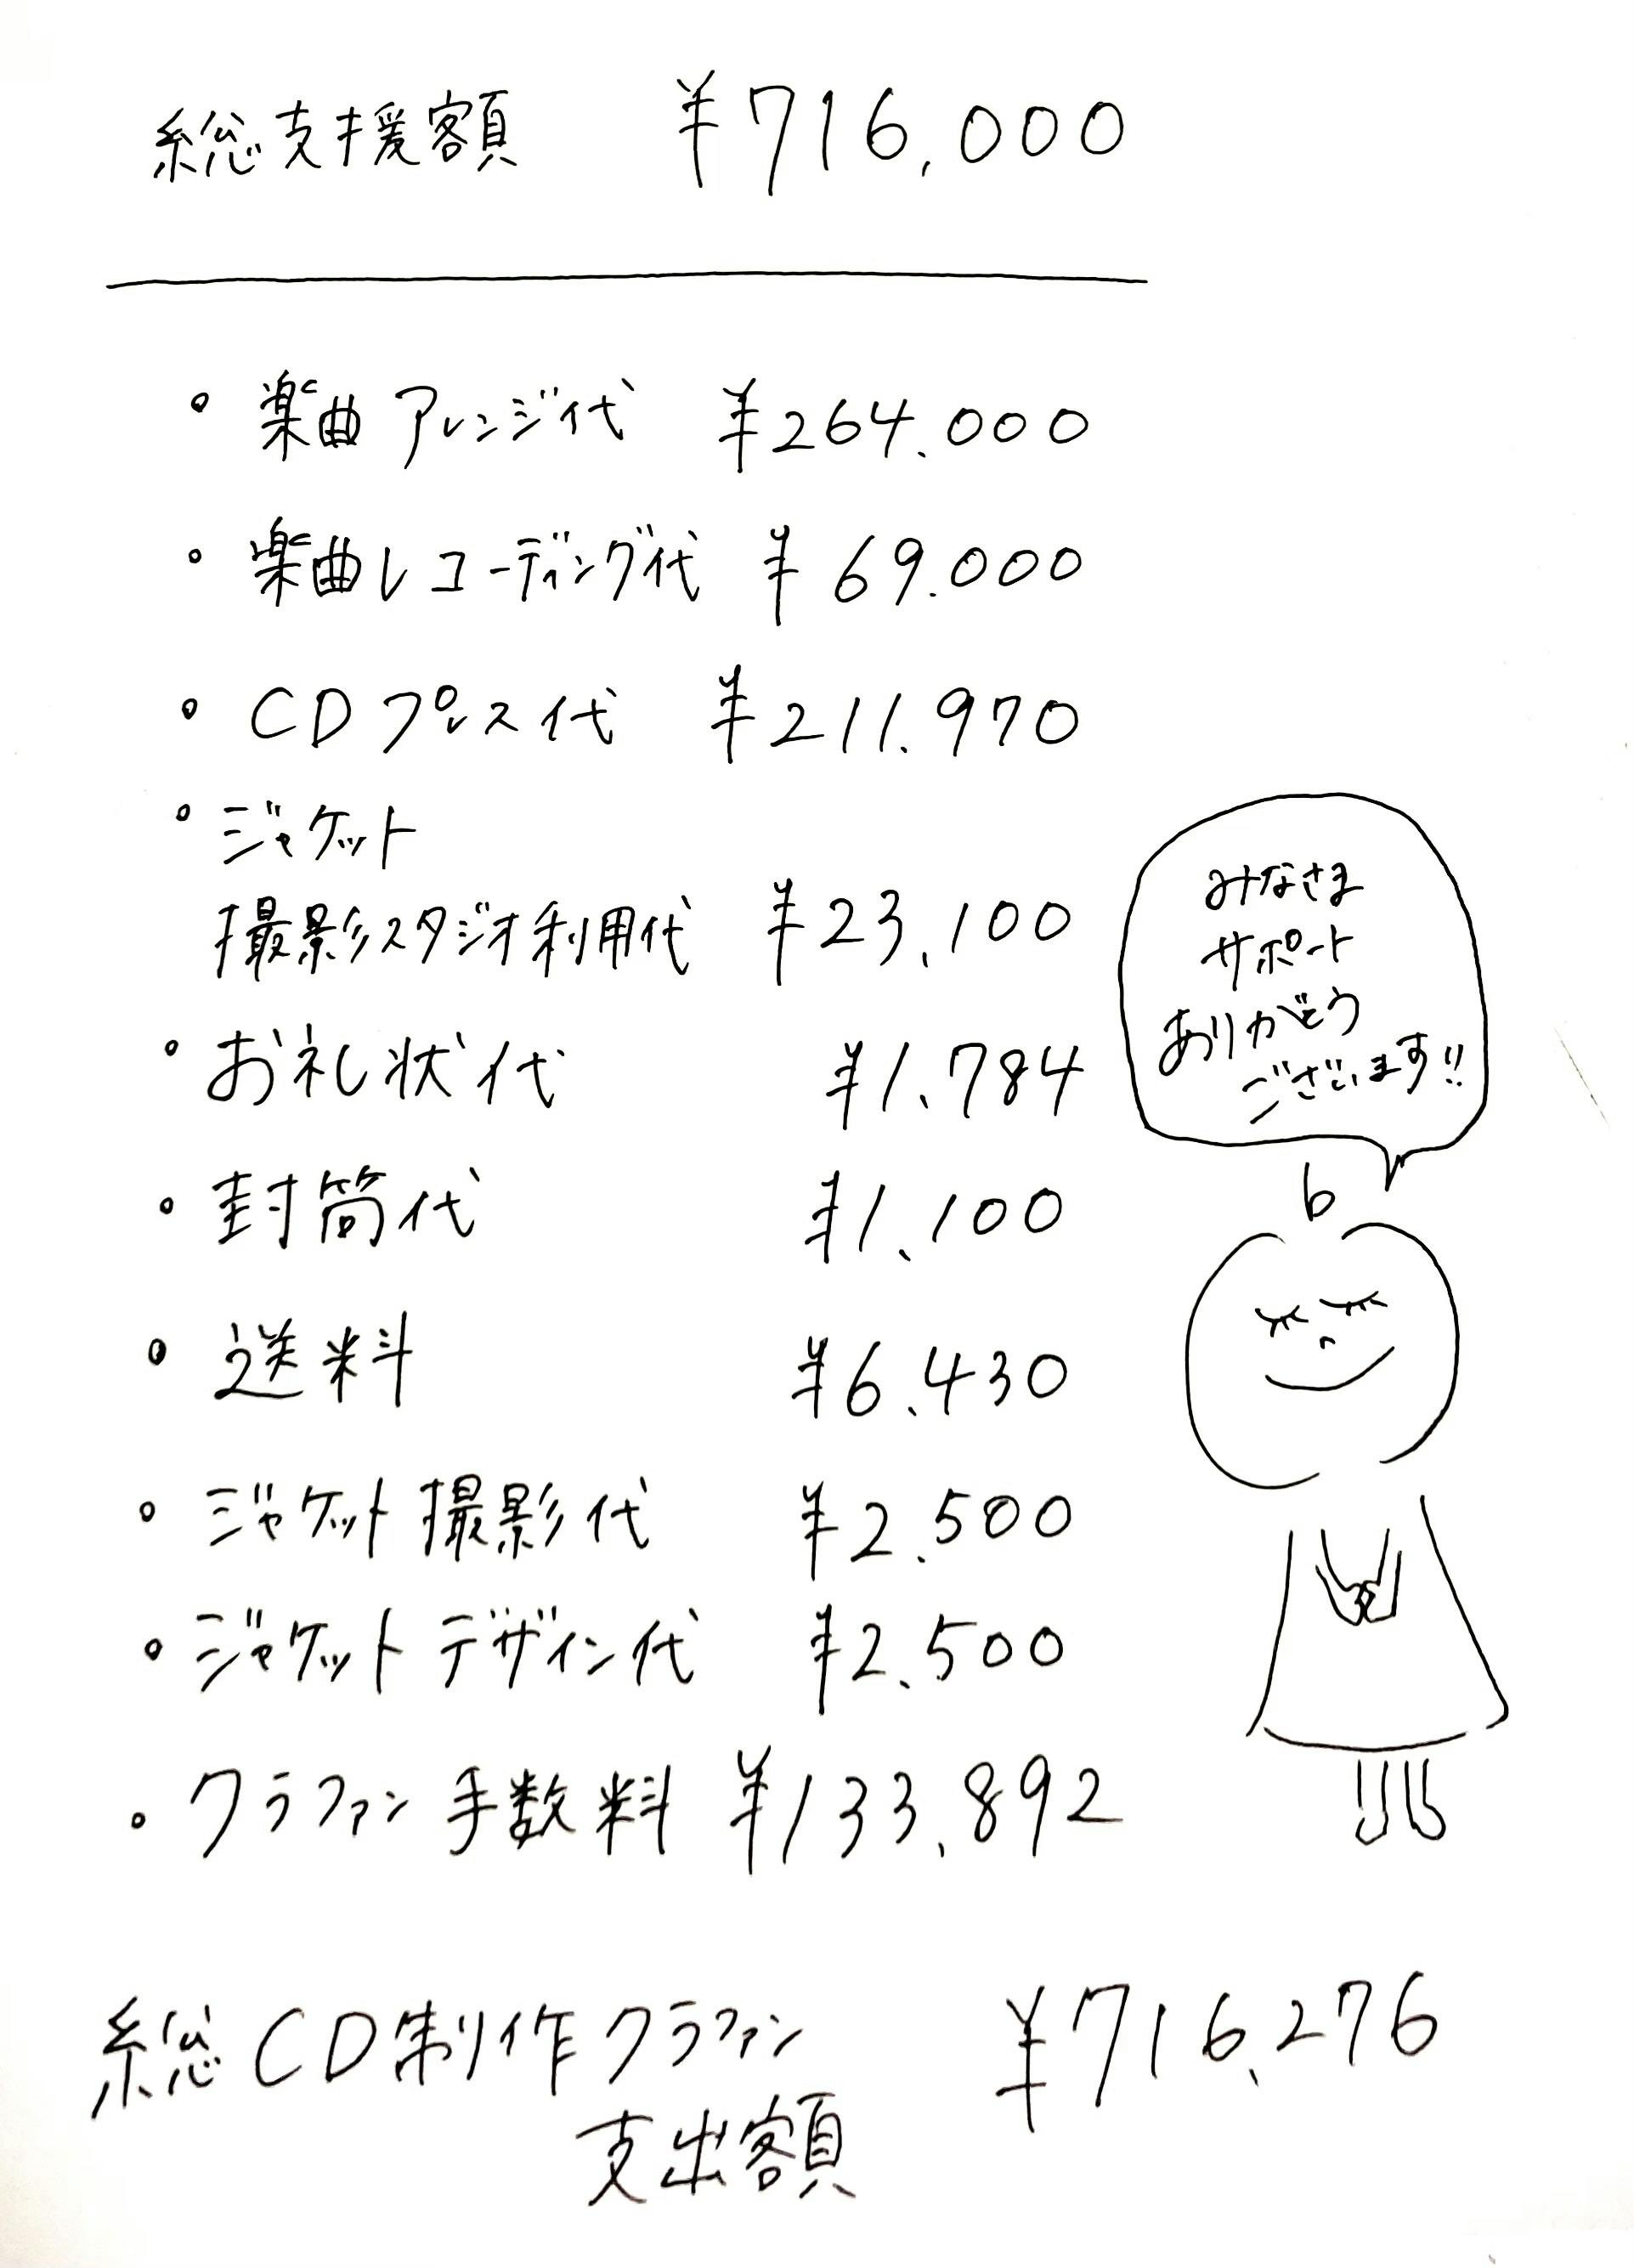 総支援額 ¥716,000
・楽曲アレンジ代 ¥264.000
・楽曲レコーディング代 ¥69.000
・CDプレス代 ¥211.970
・ジャケット
撮影スタジオ利用代 ¥23,100
・お礼状代 ¥1.784
・封筒代 ¥1.100
・送料 ¥6.430
・ジャケット撮影代 ¥2.500
・ジャケットデザイン代 ¥2.500
・クラファン手数料 ¥133.892
総CD制作クラファン ¥716.276
支出額
みなさま
サポート
ありがとう
ございます!!